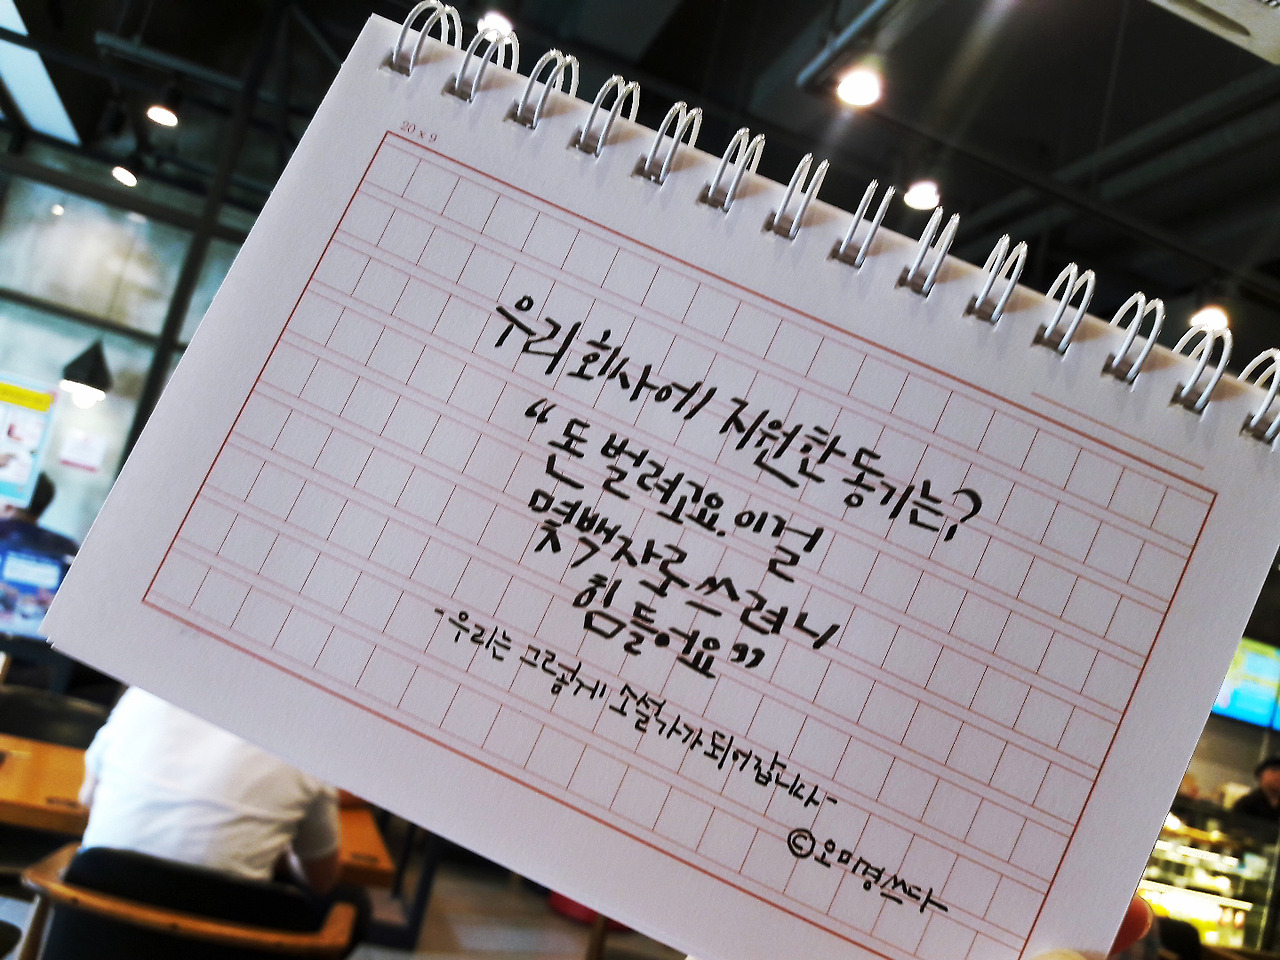 20 x 9
우리 회사에 지원한 동기는?
“돈 벌려고요. 이걸
몇백자로 쓰려니
힘들어요”
-우리는 그렇게 소설가가 되어갑니다-
©오미경쓰다